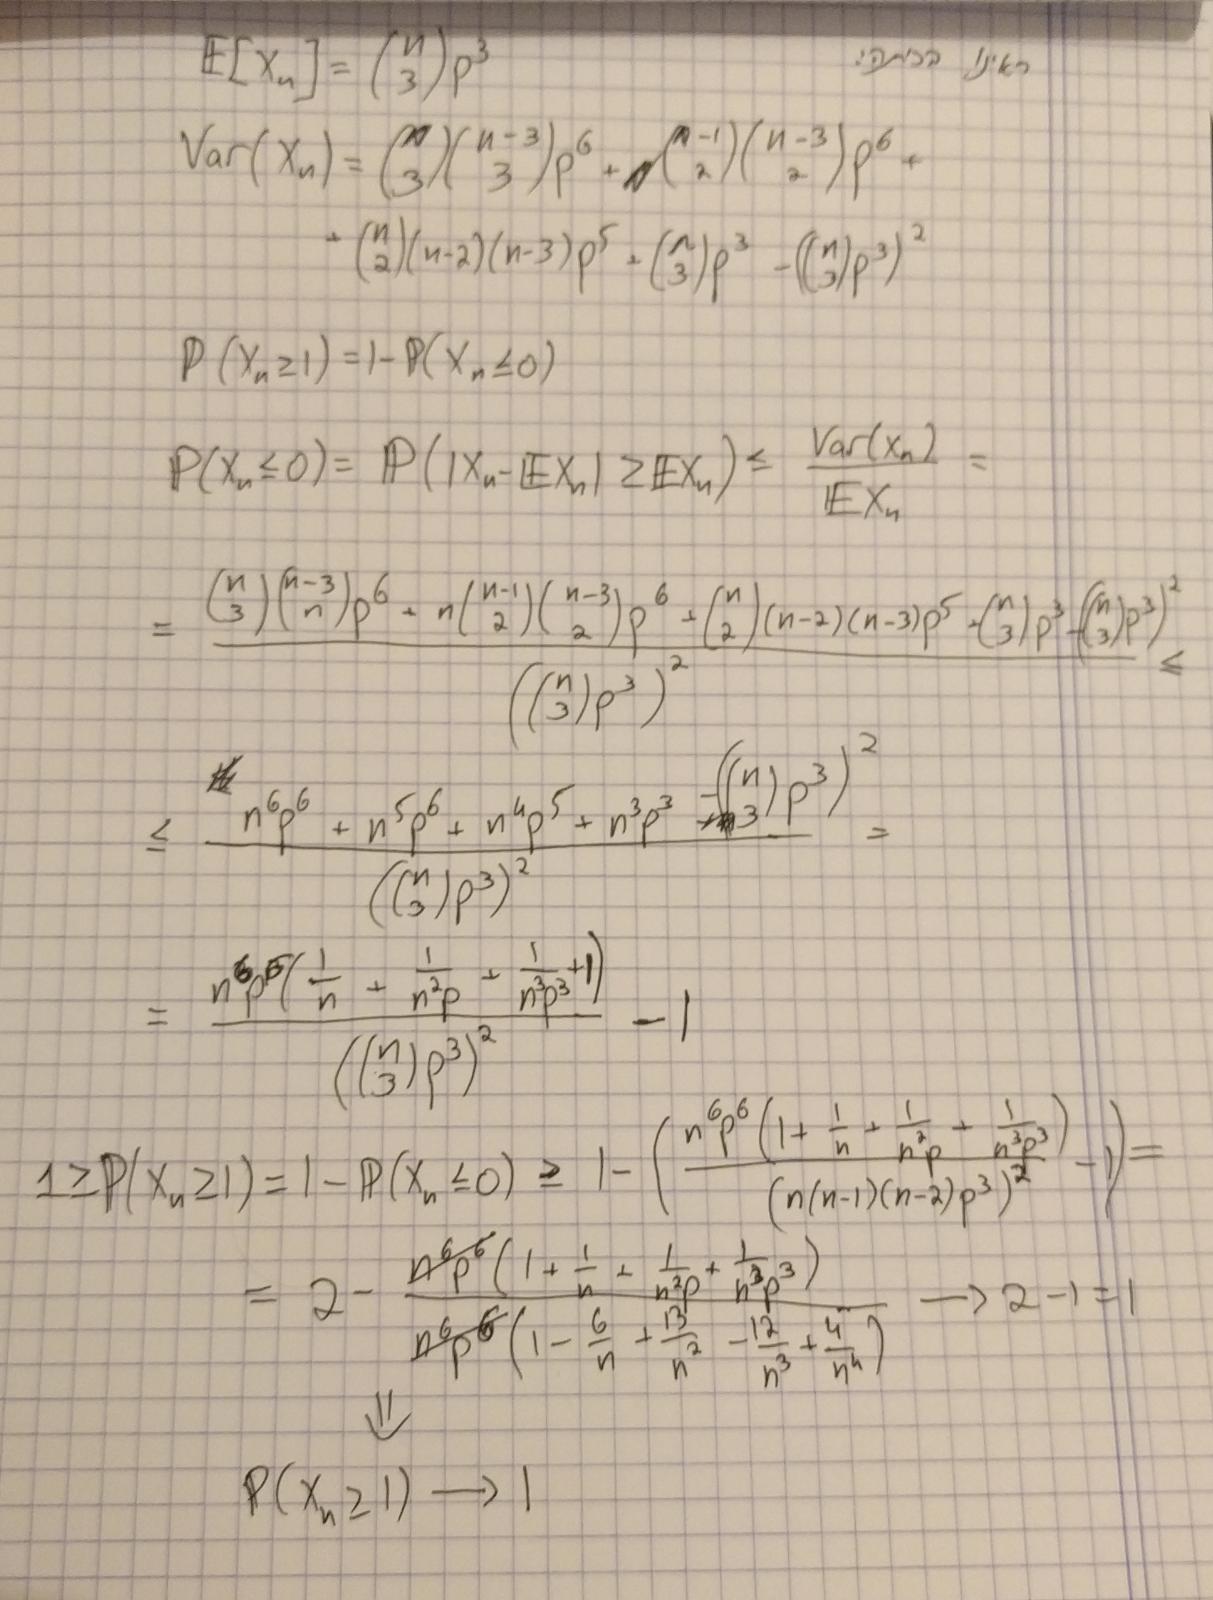 ראינו בכיתה:
𝔼[Xₙ] = (n 3)p³
Var(Xₙ) = (n 3)(n-3 3)p⁶ + n(n-1 2)(n-3 2)p⁶ +
+ (n 2)(n-2)(n-3)p⁵ + (n 3)p³ - ((n 3)p³)²
ℙ(Xₙ≥1) = 1-ℙ(Xₙ≤0)
ℙ(Xₙ≤0) = ℙ(|Xₙ-𝔼Xₙ| ≥ 𝔼Xₙ) ≤ Var(Xₙ)/𝔼Xₙ =
= ((n 3)(n-3 n)p⁶ + n(n-1 2)(n-3 2)p⁶ + (n 2)(n-2)(n-3)p⁵ + (n 3)p³ - ((n 3)p³)²)/((n 3)p³)² ≤
≤ (n⁶p⁶ + n⁵p⁶ + n⁴p⁵ + n³p³ - ((n 3)p³)²)/((n 3)p³)² =
= n⁶p⁶(1/n + 1/n²p + 1/n³p³ + 1)/((n 3)p³)² - 1
1 ≥ ℙ(Xₙ≥1) = 1 - ℙ(Xₙ≤0) ≥ 1 - (n⁶p⁶(1 + 1/n + 1/n²p + 1/n³p³)/(n(n-1)(n-2)p³)² - 1) =
= 2 - n⁶p⁶(1 + 1/n + 1/n²p + 1/n³p³)/n⁶p⁶(1 - 6/n + 13/n² - 12/n³ + 4/n⁴) → 2-1=1
⇓
ℙ(Xₙ≥1) → 1